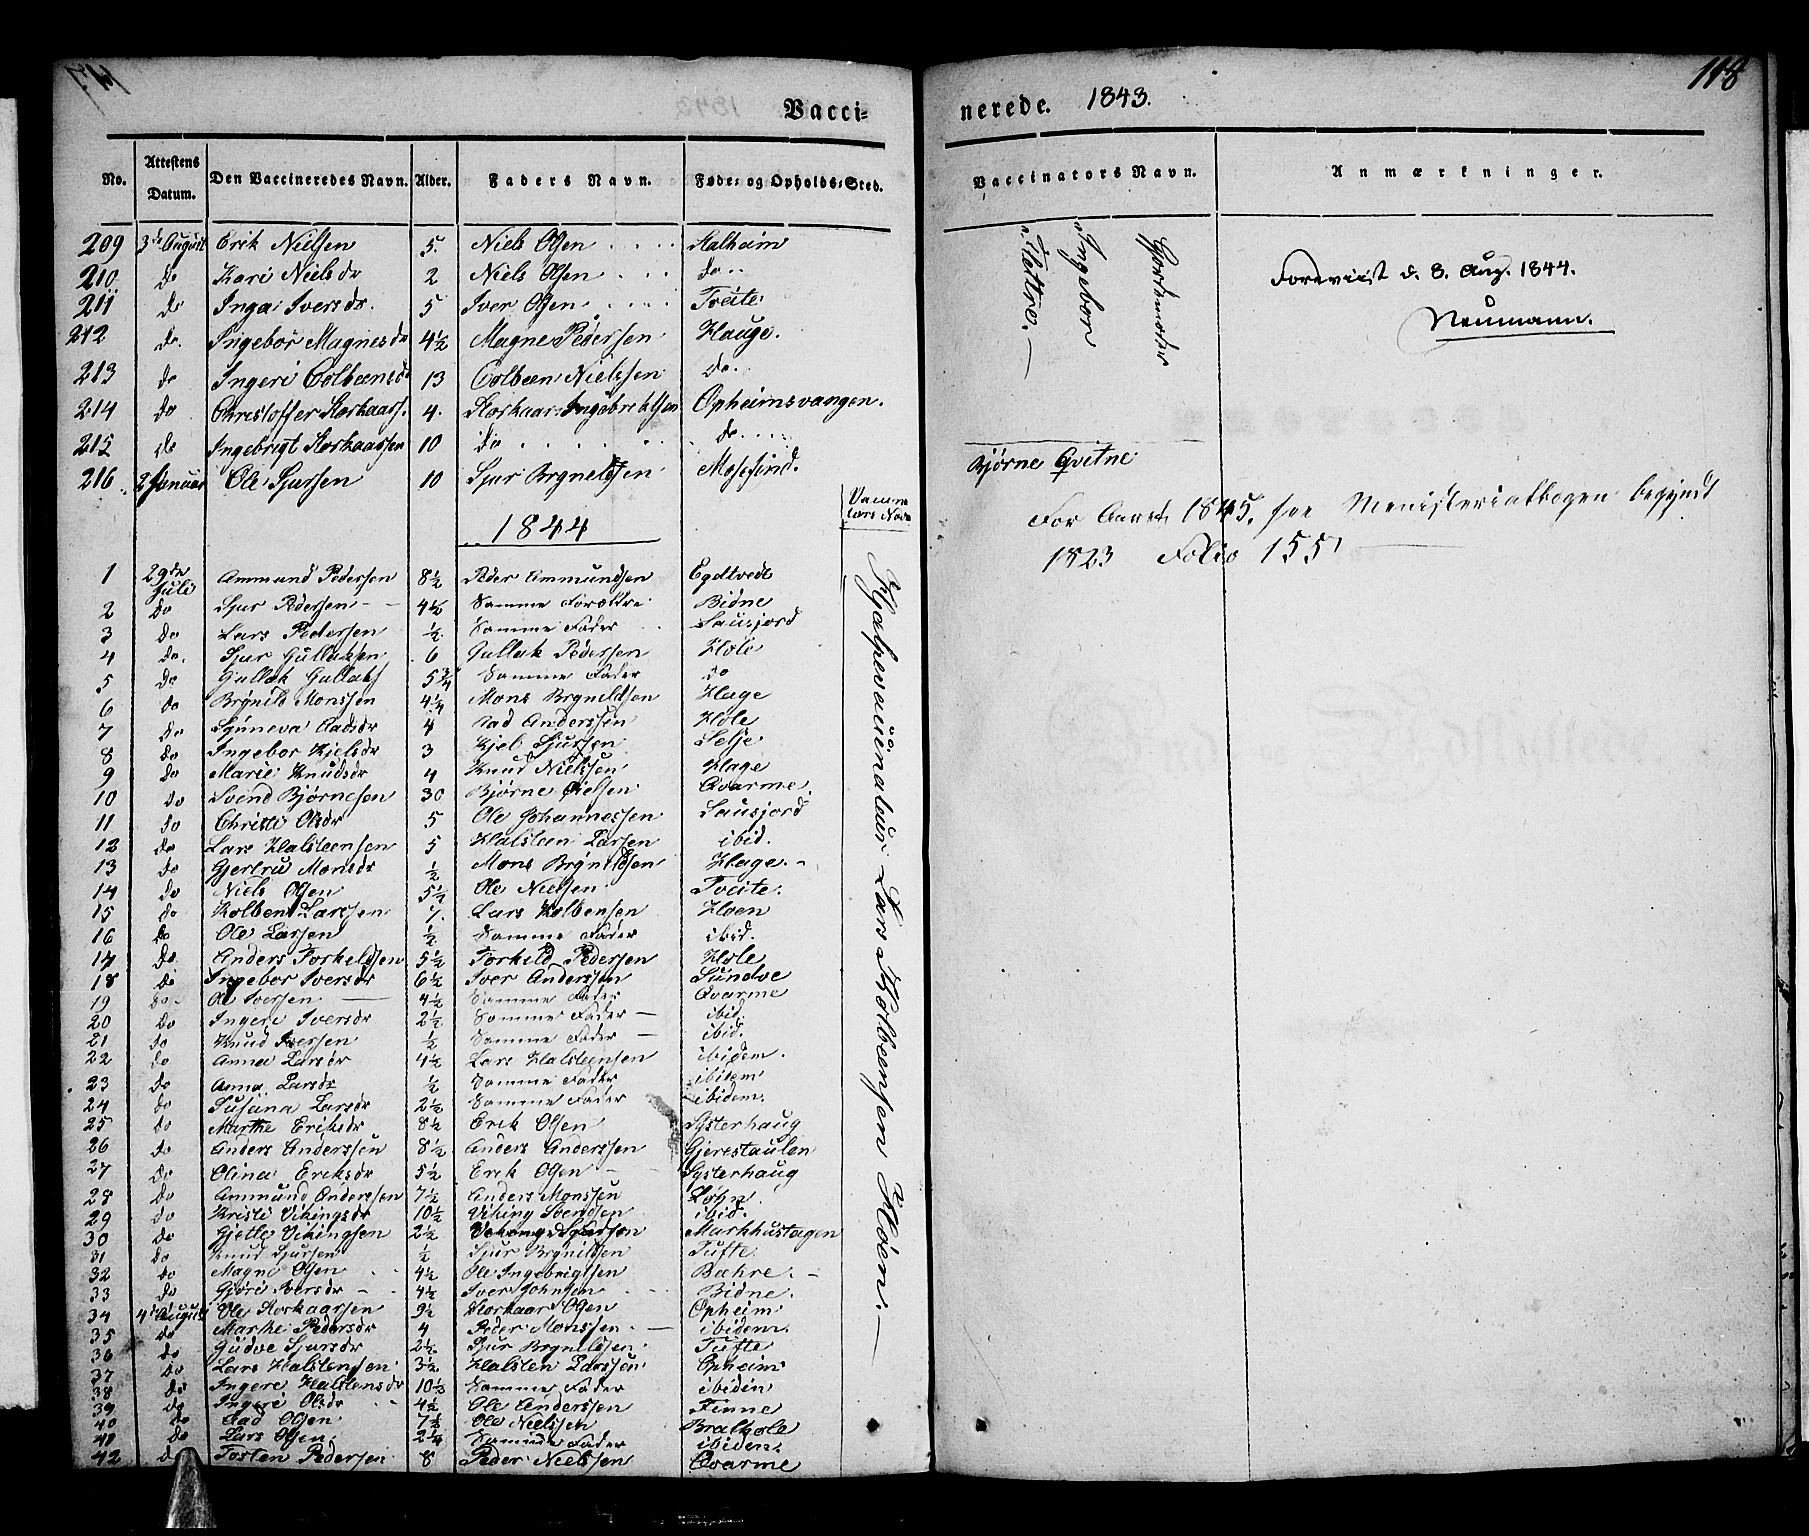 Vacci-
nerede. 1843.
118
No. Attestens Datum. Den Vaccineredes Navn. Alder. Faders Navn. Føde- og Opholds-Sted.
Vaccinators Navn. Anmærkninger.
209 3die August Erik Nielsen 5. Niels Olsen Stalheim
210. do Kari Nielsdr 2 Niels Olsen do
211 do Inga Iversdr. 5 Iver Olsen Tveite
212 do. Ingebor Magnesdr 4½ Magne Pedersen Hauge.
213 do Ingeri Colbeensdr 13 Colbeen Nielssen do.
214 do Christoffer Storkaars. 4. Storkaar Ingebrektsen Opheimsvangen.
215 do Ingebrigt Storkaarsen 10 do do
216 2 Januar Ole Sjursen 10 Sjur Brynildsen Mosefind.
Gjordemoder
Ingebor
Slettre.
Forevist d. 8. Aug. 1844.
Neumann.
Bjørne Qvitne
For Aaret 1845. see Ministerialbogen begyndt
1823 Folio 155
1844
1 29de Juli Ammund Pedersen 8½ Peder Ammundsen Egdtvedt
2 do Sjur Pedersen 4½ Samme Forældre Bidne
3 do Lars Pedersen ½ Samme Fader Sausjord
4 do. Sjur Gullaksen 6 Gullak Pedersen Hole
5 do Gullak Gullaks 5¾ Samme Fader do
6 do Brynild Monssen 4¼ Mons Brynildsen Hage
7 do Synneva Aadsdr 4 Aad Anderssen Hole
8 do Ingebor Kjelsdr 3 Kjel Sjurssen Selje
9 do Marie Knudsdr 4 Knud Nielssen Hage
10 do Svend Bjørnesen 30 Bjørne Qvarme.
11 do Christi Olsdr 5 Ole Johannessen Sausjord
12 do Lars Halsteensen 5 Halsteen Larsen ibid.
13 do Gjertru Monsdr ½ Mons Brynildsen Hage.
14 do Niels Olsen 5½ Ole Nielsen Tveite.
15 do Kolben Larssen 7. Lars Kolbensen Hoen
16 do Ole Larsen ½ Samme Fader ibid.
17 do. Anders Torkeldsen 5½ Torkild Pedersen Hole
18 do Ingebor Iversdr 6½ Iver Anderssen Sundve
19 do Ole Iversen 4½ Samme Fader Qvarme
20 do Ingeri Iversdr 2½ Samme Fader ibid.
21 do Knud Iversen ½ Samme Fader ibid.
22 do Anna Larsdr 4½ Lars Halsteensen ibidem.
23 do Anna Larsdr ½ Samme Fader ibidem
24 do Susäna Larsdr 2½ Samme Fader ibidem.
25 do Marthe Eriksdr 8½ Erik Olsen Systerhaug
26 do Anders Anderssen 8½ Anders Anderssen Gjerestaulen
27 do Olina Eriksdr 5½ Erik Olsen Systerhaug
28 do Ammund Anderssen 7½ Anders Monssen Løhn.
29 do Kristi Vikingsdr 10½ Viking Svendsen ibid.
30 do Gjetle Vikingsen 2½ Viking Markhustagen
31 do Knud Sjursen ½ Sjur Brynildsen Tufte.
32 do Magne Olsen 4½ Ole Ingebrigtsen Bæhre.
33 do Gjøri Iversdr 4½ Iver Johnsen Bidne.
34 4de August Ole Storkaarsen 9½ Storkaar Olsen Opheim
35 do Marthe Pedersdr 4 Peder Monssen ibidem.
36 do Gudve Sjursdr 2½ Sjur Brynildsen. Tufte.
37 do Lars Halstensen 3½ Halsten Larssen Opheim
38 do Ingeri Halstensdr 10½ Samme Fader ibidem
39 do Ingeri Olsdr 4½ Ole Anderssen Finne
40 do Aad Olsen 7½ Ole Nielssen Brathole
41 do Lars Olsen. 2¼ Samme Fader ibidem.
42 do Tosten Pedersen 8 Peder Nielssen Qvarme
Hjælpevaccinateur Lars Kolbeensen Hoen.